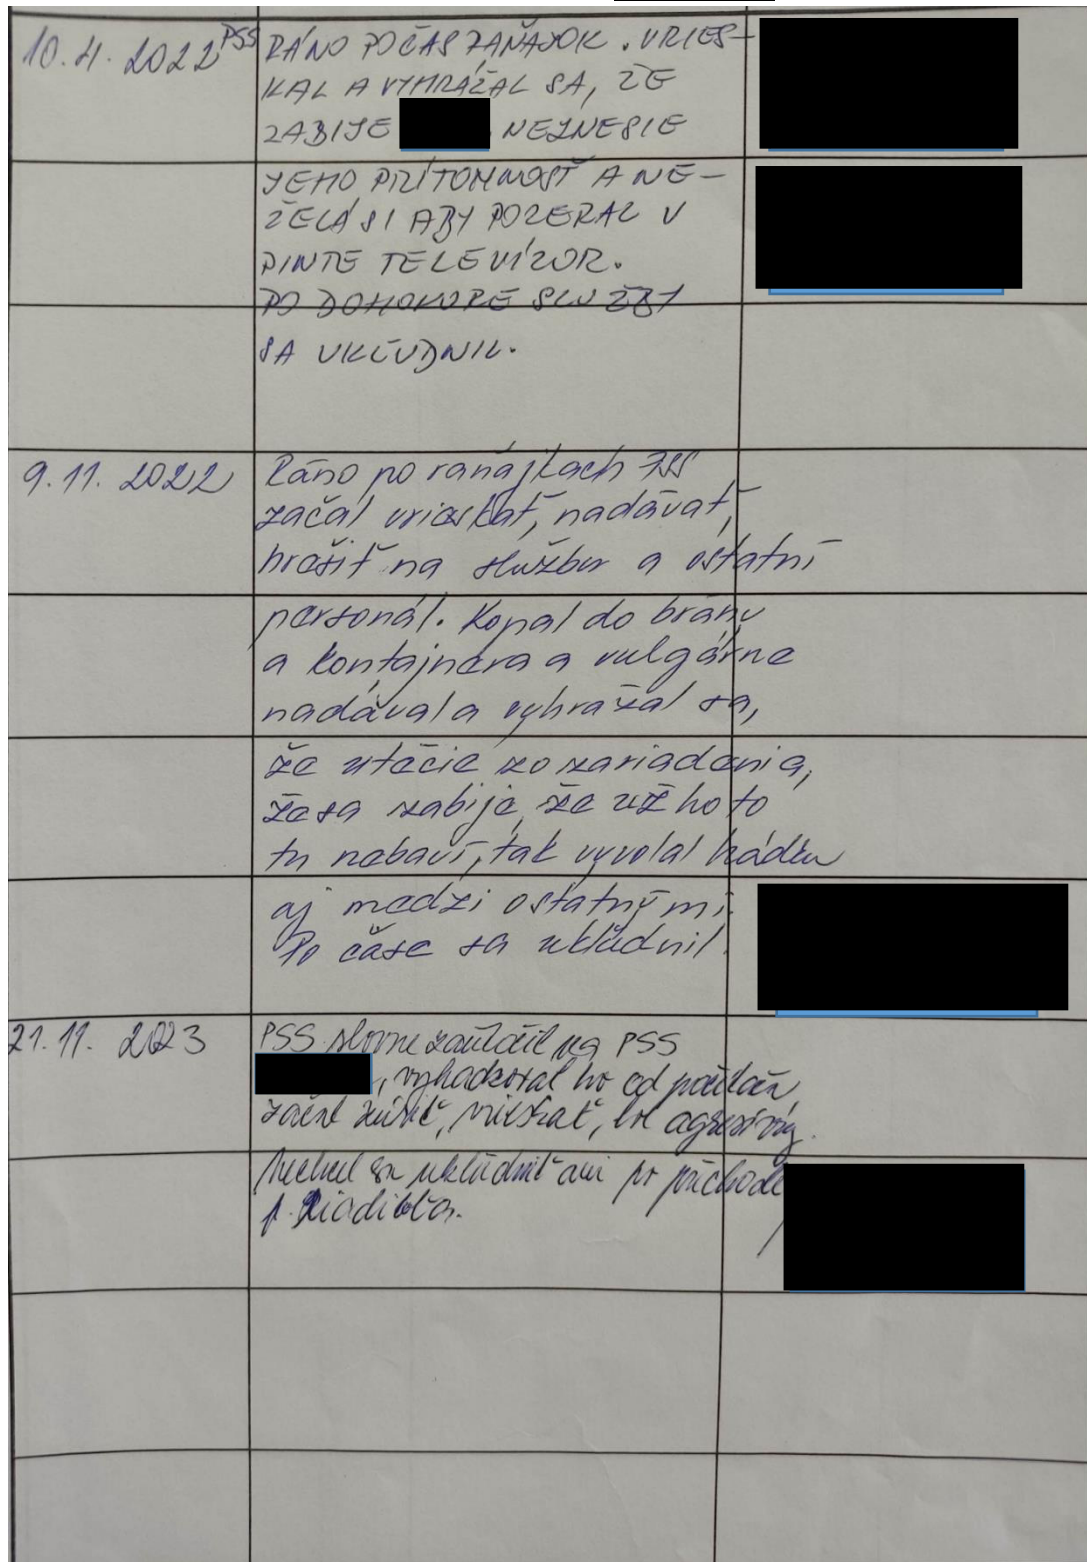 10.4.2022 PSS RÁNO POČAS RAŇAJOK. VRIES-
KAL A VYHRÁŽAL SA, ŽE
ZABIJE NEZNESIE
JEHO PRÍTOMNOSŤ A NE-
ŽELÁ SI ABY POZERAL V
PINTE TELEVÍZOR.
PO DOHOVORE SLUŽBY
SA UKĽUDNIL.
9.11.2022 Ráno po raňajkach PSS
začal vrieskať, nadávať,
hrešiť na službu a ostatní
personál. Kopal do brány
a kontajnera a vulgárne
nadával a vyhražal sa,
že utečie zo zariadenia,
že sa zabije, že už ho to
tu nebaví, tak vyvolal hádku
aj medzi ostatnými.
Po čase sa ukľudnil.
21.11.2023 PSS slovne zaútočil na PSS
, vyhadzoval ho od počítača,
začal zúriť, vrieskať, bol agresívny.
Nechcel sa ukľudniť ani po príchode
p. riaditeľa.